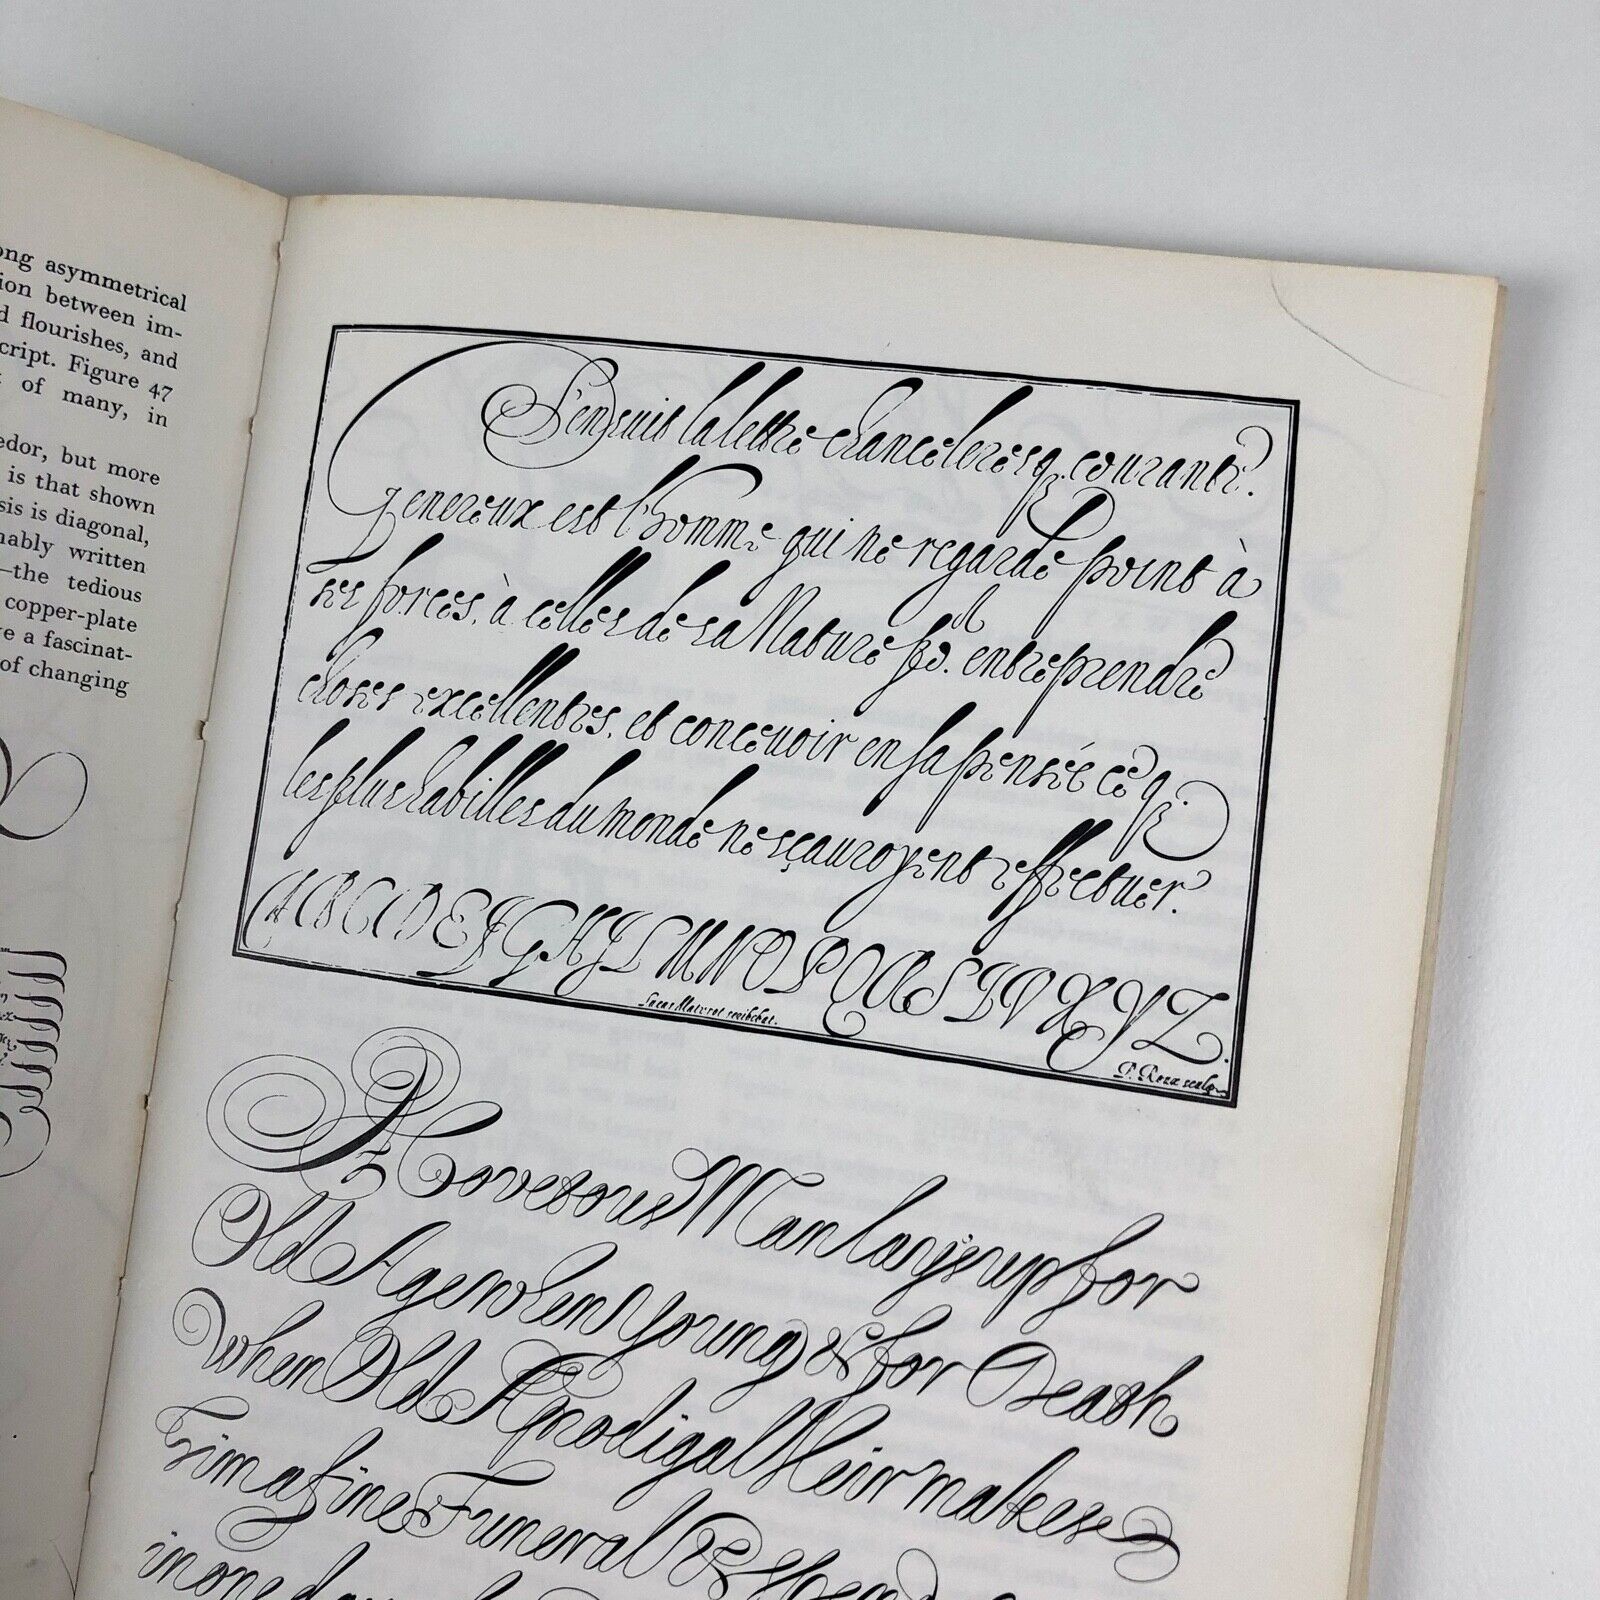 ong asymmetrical
ion between im-
d flourishes, and
cript. Figure 47
of many, in
edor, but more
is that shown
sis is diagonal,
nably written
—the tedious
copper-plate
ve a fascinat-
of changing
S'ensuit la lettre chanceleresq. courante.
Genereux est l'homme qui ne regarde point à
ses forces, à celles de sa Nature po. entreprendre
choses excellentes, et conceuoir en sa pensée ce q.
les plus habilles du monde ne sçauroyent effectuer.
A B C D E F G H J L M N O P Q R S T V X Y Z.
Lucas Materot scribebat.
P. Roux sculp.
A Covetous Man layes up for
Old Age when Young & for Death
when Old A prodigal Heir makes
him a fine Funeral & spend
in one day